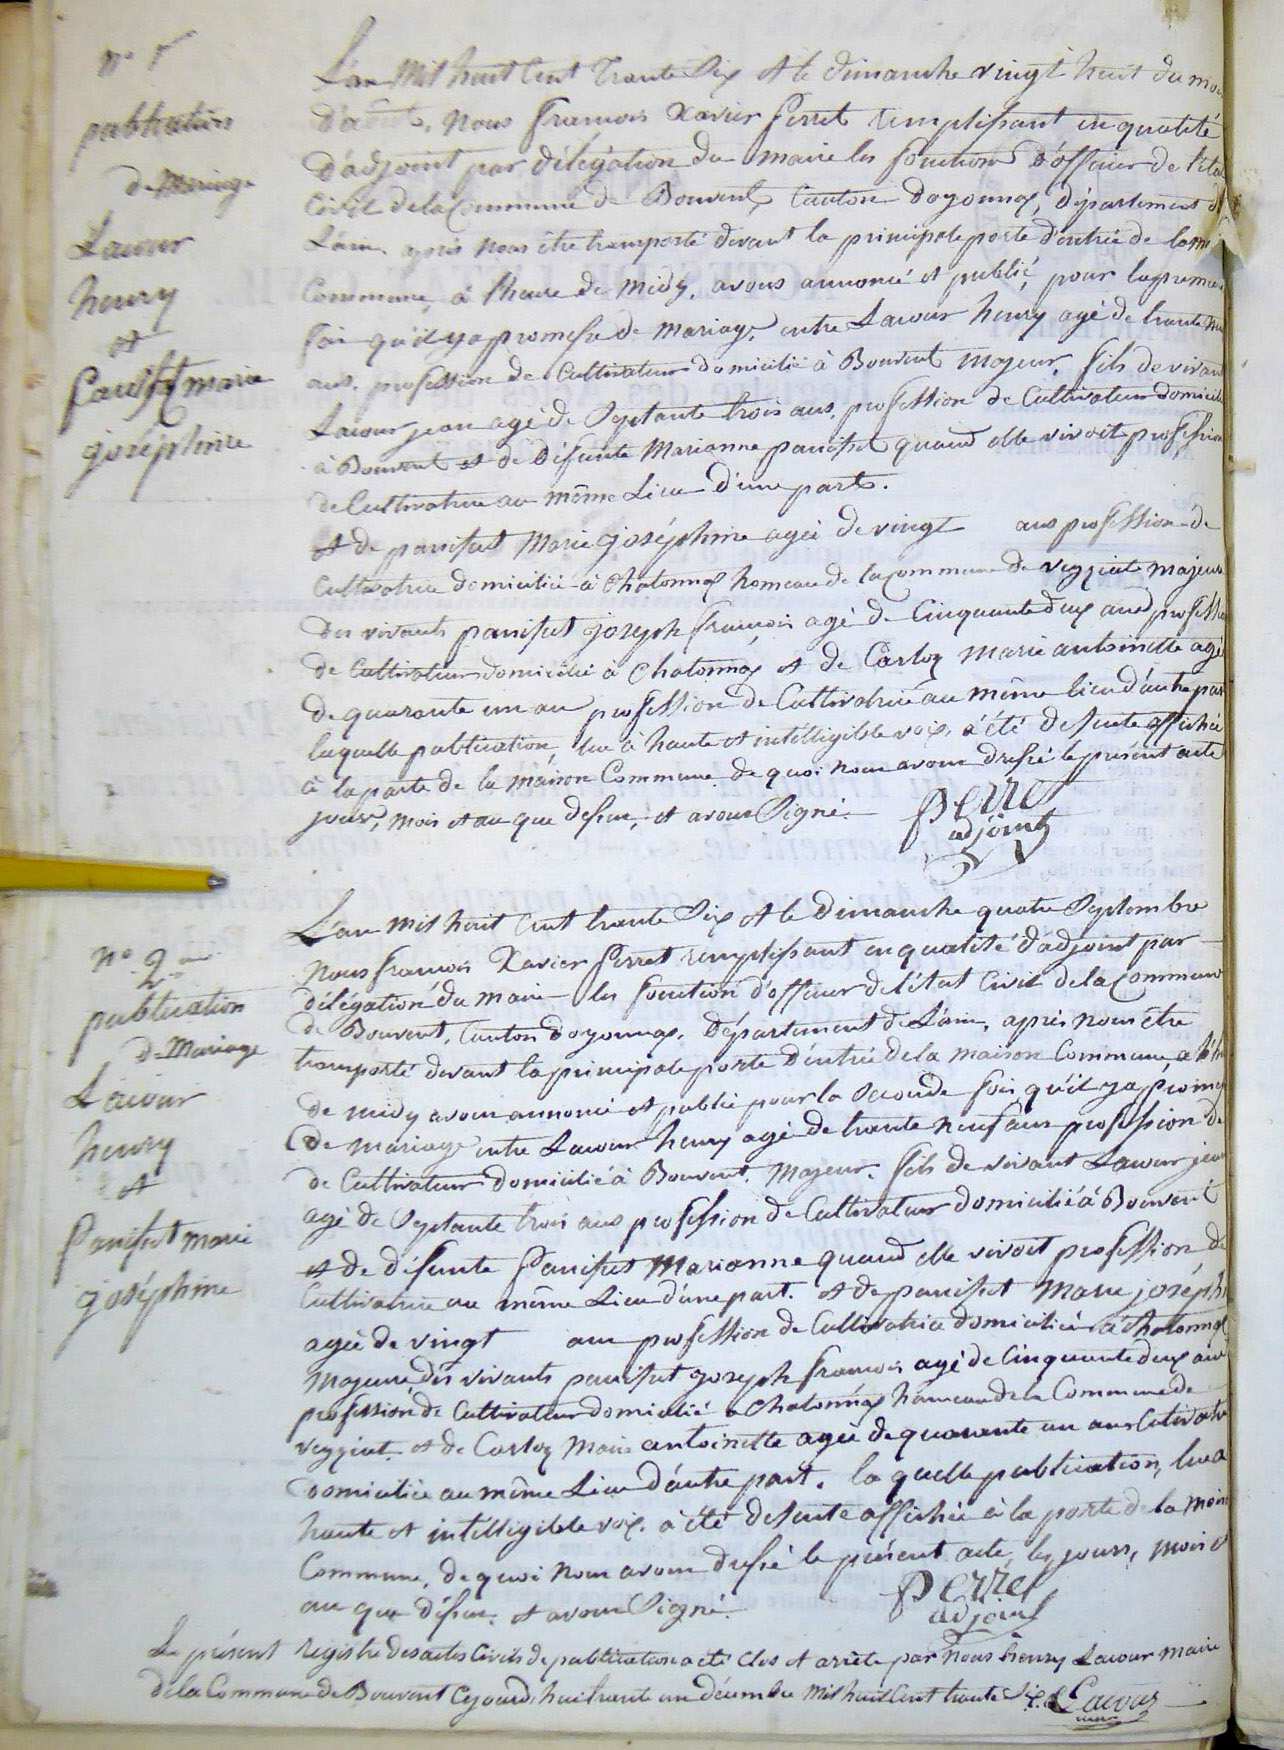 N° 1
publication
de Mariage
Lacour
henry
et
Panisset marie
joséphine
L'an Mil huit Cent Trente Six et le dimanche vingt huit du mois
d'août, Nous françois Xavier Perret remplissant en qualité
D'adjoint par délégation du maire les fonctions d'officier de l'état
Civil de la Commune de Bouvent, Canton d'oyonnax, département de
L'ain, après nous être transporté devant la principale porte d'entrée de la maison
Commune, à l'heure de midy, avons annoncé et publié, pour la premiere
fois qu'il y a promesse de mariage, entre Lacour henry agé de trente neuf
ans, profession de Cultivateur domicilié à Bouvent Majeur, fils de vivant
Lacour jean agé de Septante trois ans, profession de Cultivateur domicilié
à Bouvent et de Défunte Marianne panisset quand elle vivoit profession
de Cultivatrice au même Lieu d'une part.
et de panisset Marie joséphine agée de vingt ans profession de
Cultivatrice domiciliée à Chatonnax hameau de la Commune de veyziat majeure
des vivants panisset joseph françois agé de Cinquante deux ans profession
de Cultivateur domicilié à Chatonnax et de Carloz Marie antoinette agée
de quarante un an profession de Cultivatrice au même lieu d'autre part
laquelle publication, lue à haute et intelligible voix, a été de suite affichée
à la porte de la maison Commune de quoi nous avons dressé le présent acte
jour, mois et an que dessus, et avons Signé.
Perret
adjoint
N° 2
publication
de Mariage
Lacour
henry
et
Panisset marie
joséphine
L'an Mil huit Cent trente Six et le Dimanche quatre Septembre
Nous françois Xavier Perret remplissant en qualité d'adjoint par
délégation du maire les fonction d'officier de l'état Civil de la Commune
de Bouvent, Canton d'oyonnax, Département de L'ain, après nous être
transporté devant la principale porte D'entrée de la maison Commune, à l'heure
de midy avons annoncé et publié pour la Seconde fois qu'il y a promesse
de mariage entre Lacour henry agé de trente neuf ans profession de
de Cultivateur domicilié à Bouvent, Majeur, fils de vivant Lacour jean
agé de Septante trois ans profession de Cultivateur domicilié à Bouvent
et de défunte Panisset Marianne quand elle vivoit profession de
Cultivatrice au même Lieu d'une part. et de panisset Marie joséphine
agée de vingt ans profession de Cultivatrice domiciliée à Chatonnax
Majeure des vivants panisset joseph françois agé de Cinquante deux ans
profession de Cultivateur domicilié a Chatonnax hameau de la Commune de
veyziat et de Carloz Marie antoinette agée de quarante un ans Cultivatrice
domiciliée au même Lieu d'autre part. la quelle publication, lue a
haute et intelligible voix, a été de suite affichée à la porte de la maison
Commune, de quoi nous avons dressé le présent acte, les jours, mois et
an que dessus, et avons Signé.
Perret
adjoint
Le présent registre des actes Civils de publication a été Clos et arrêté par Nous henry Lacour maire
de la Commune de Bouvent Cejourd'hui trente un décembre Mil huit Cent trente Six. Lacour